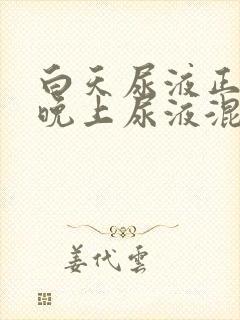 白天尿液正
晚上尿液混
姜代雲